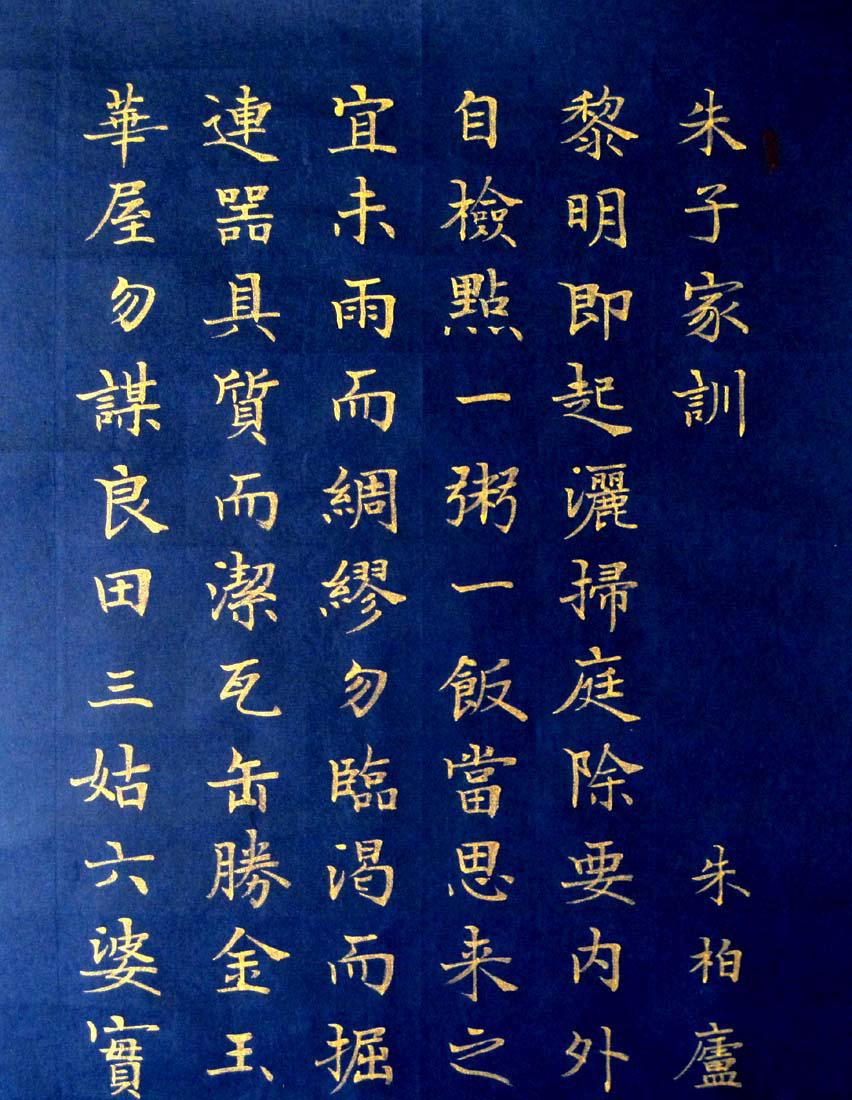 朱子家訓 朱柏廬
黎明即起灑掃庭除要内外
自檢點一粥一飯當思来之
宜未雨而綢繆勿臨渴而掘
連器具質而潔瓦缶勝金玉
華屋勿謀良田三姑六婆實